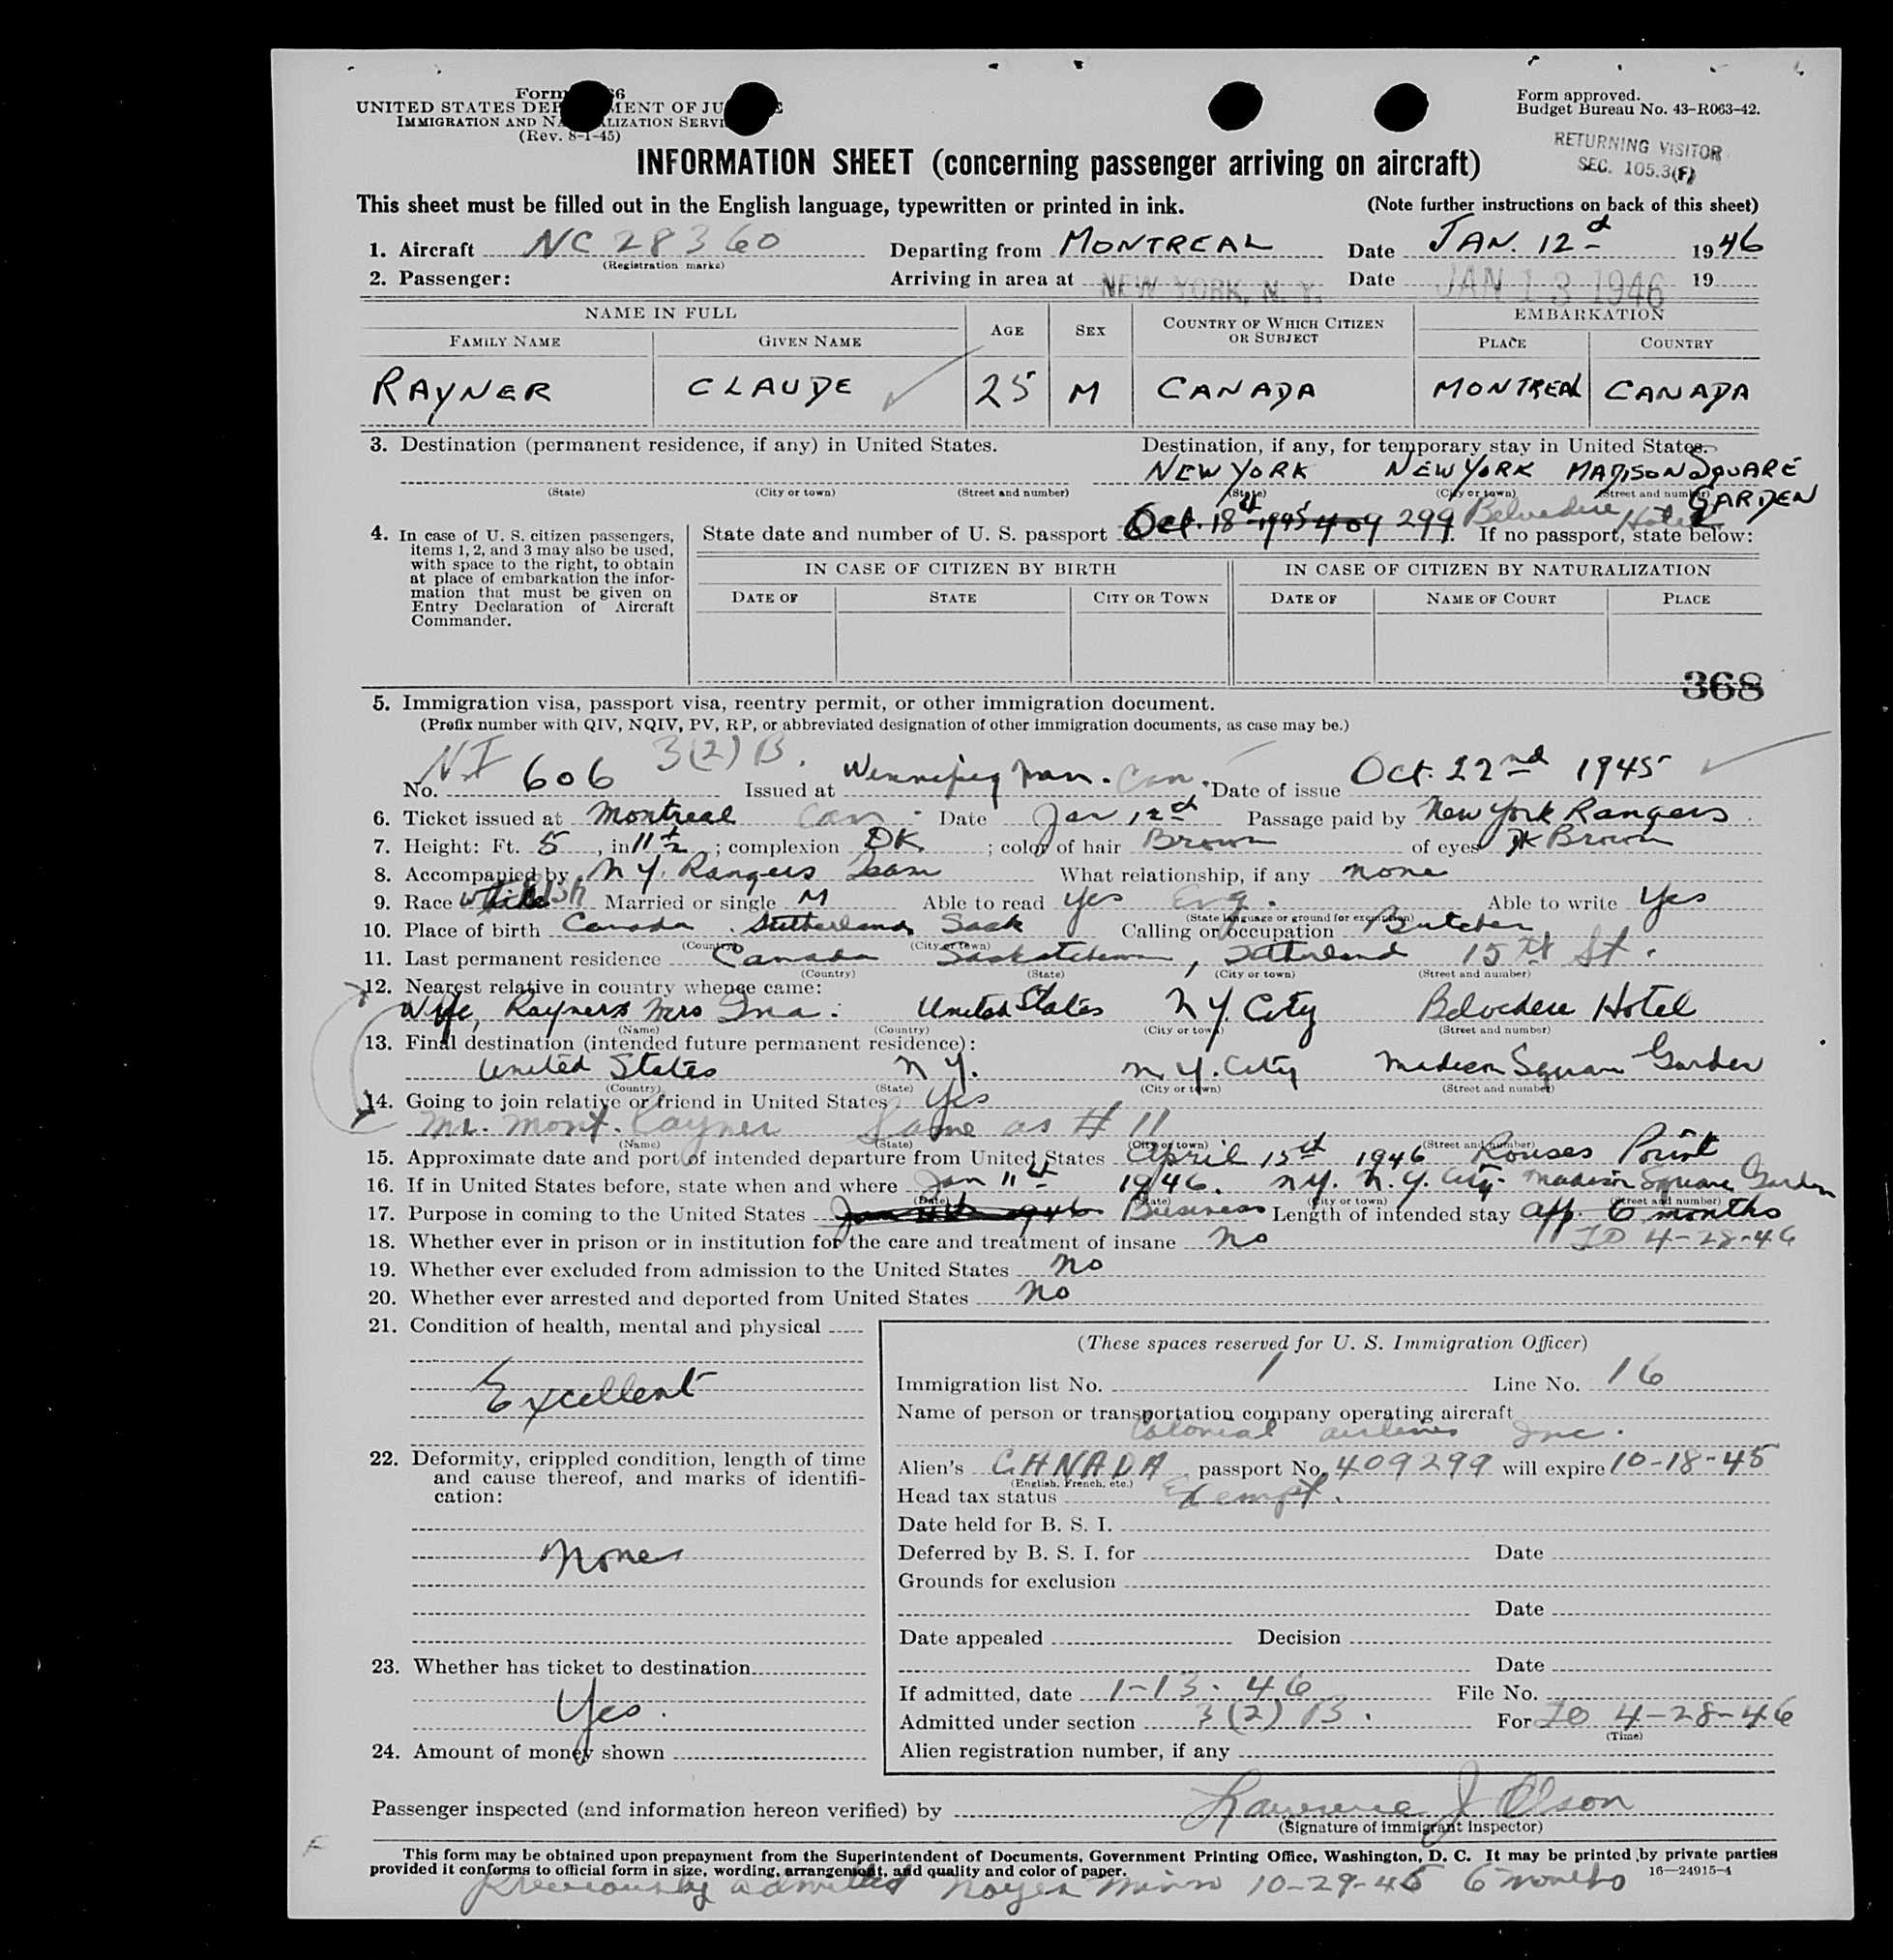 Form 66
UNITED STATES DEP MENT OF JU E
IMMIGRATION AND NA LIZATION SERVI
(Rev. 8-1-45)
Form approved.
Budget Bureau No. 43-R063-42.
RETURNING VISITOR
SEC. 105.3(F)
INFORMATION SHEET (concerning passenger arriving on aircraft)
This sheet must be filled out in the English language, typewritten or printed in ink. (Note further instructions on back of this sheet)
1. Aircraft NC 28360 Departing from MONTREAL Date JAN. 12d 1946
(Registration marks)
2. Passenger: Arriving in area at NEW YORK, N. Y. Date JAN 13 1946 19
NAME IN FULL AGE SEX COUNTRY OF WHICH CITIZEN OR SUBJECT EMBARKATION
FAMILY NAME GIVEN NAME PLACE COUNTRY
RAYNER CLAUDE 25 M CANADA MONTREAL CANADA
3. Destination (permanent residence, if any) in United States. Destination, if any, for temporary stay in United States.
NEW YORK NEW YORK MADISON SQUARE GARDEN
(State) (City or town) (Street and number) (State) (City or town) (Street and number)
Belvedere Hotel
4. In case of U. S. citizen passengers, items 1, 2, and 3 may also be used, with space to the right, to obtain at place of embarkation the information that must be given on Entry Declaration of Aircraft Commander.
State date and number of U. S. passport Oct. 18th 1945 409 299 If no passport, state below:
IN CASE OF CITIZEN BY BIRTH IN CASE OF CITIZEN BY NATURALIZATION
DATE OF STATE CITY OR TOWN DATE OF NAME OF COURT PLACE
368
5. Immigration visa, passport visa, reentry permit, or other immigration document.
(Prefix number with QIV, NQIV, PV, RP, or abbreviated designation of other immigration documents, as case may be.)
No. NI 606 3(2)B. Issued at Winnipeg Man. Can. Date of issue Oct. 22nd 1945
6. Ticket issued at Montreal Can. Date Jan 12d Passage paid by New York Rangers
7. Height: Ft. 5, in 11½; complexion DK. ; color of hair Brown of eyes DK Brown
8. Accompanied by N.Y. Rangers Team What relationship, if any none
9. Race Married or single M Able to read yes Eng. Able to write Yes
(State language or ground for exemption)
10. Place of birth Canada Sutherland Sask Calling or occupation Butcher
(Country) (City or town)
11. Last permanent residence Canada Saskatchewan, Sutherland 15th St.
(Country) (State) (City or town) (Street and number)
12. Nearest relative in country whence came:
Wife, Rayner Mrs Ina. United States N Y City Belvedere Hotel
(Name) (Country) (City or town) (Street and number)
13. Final destination (intended future permanent residence):
United States N.Y. N.Y. City Madison Square Garden
(Country) (State) (City or town) (Street and number)
14. Going to join relative or friend in United States Yes
Mr. Mont. Rayner Same as # 11
(Name) (State) (City or town) (Street and number)
15. Approximate date and port of intended departure from United States April 15th 1946 Rouses Point
16. If in United States before, state when and where Jan 11th 1946. N.Y. N.Y. City. Madison Square Garden
(Date) (State) (City or town) (Street and number)
17. Purpose in coming to the United States Jan 11th 1946 Business Length of intended stay app. 6 months
TO 4-28-46
18. Whether ever in prison or in institution for the care and treatment of insane No
19. Whether ever excluded from admission to the United States No
20. Whether ever arrested and deported from United States No
21. Condition of health, mental and physical
Excellent
22. Deformity, crippled condition, length of time and cause thereof, and marks of identification:
None
23. Whether has ticket to destination
Yes.
24. Amount of money shown
(These spaces reserved for U. S. Immigration Officer)
Immigration list No. 1 Line No. 16
Name of person or transportation company operating aircraft
Colonial Airlines Inc.
Alien's CANADA passport No. 409299 will expire 10-18-45
(English, French, etc.)
Head tax status Exempt.
Date held for B. S. I.
Deferred by B. S. I. for Date
Grounds for exclusion
Date
Date appealed Decision
Date
If admitted, date 1-13-46 File No.
Admitted under section 3(2)B. For TO 4-28-46
(Time)
Alien registration number, if any
Passenger inspected (and information hereon verified) by Lawrence J Olson
(Signature of immigrant inspector)
This form may be obtained upon prepayment from the Superintendent of Documents, Government Printing Office, Washington, D. C. It may be printed by private parties
provided it conforms to official form in size, wording, arrangement, and quality and color of paper. 16—24915-4
Previously admitted Noyes Minn 10-29-45 6 months